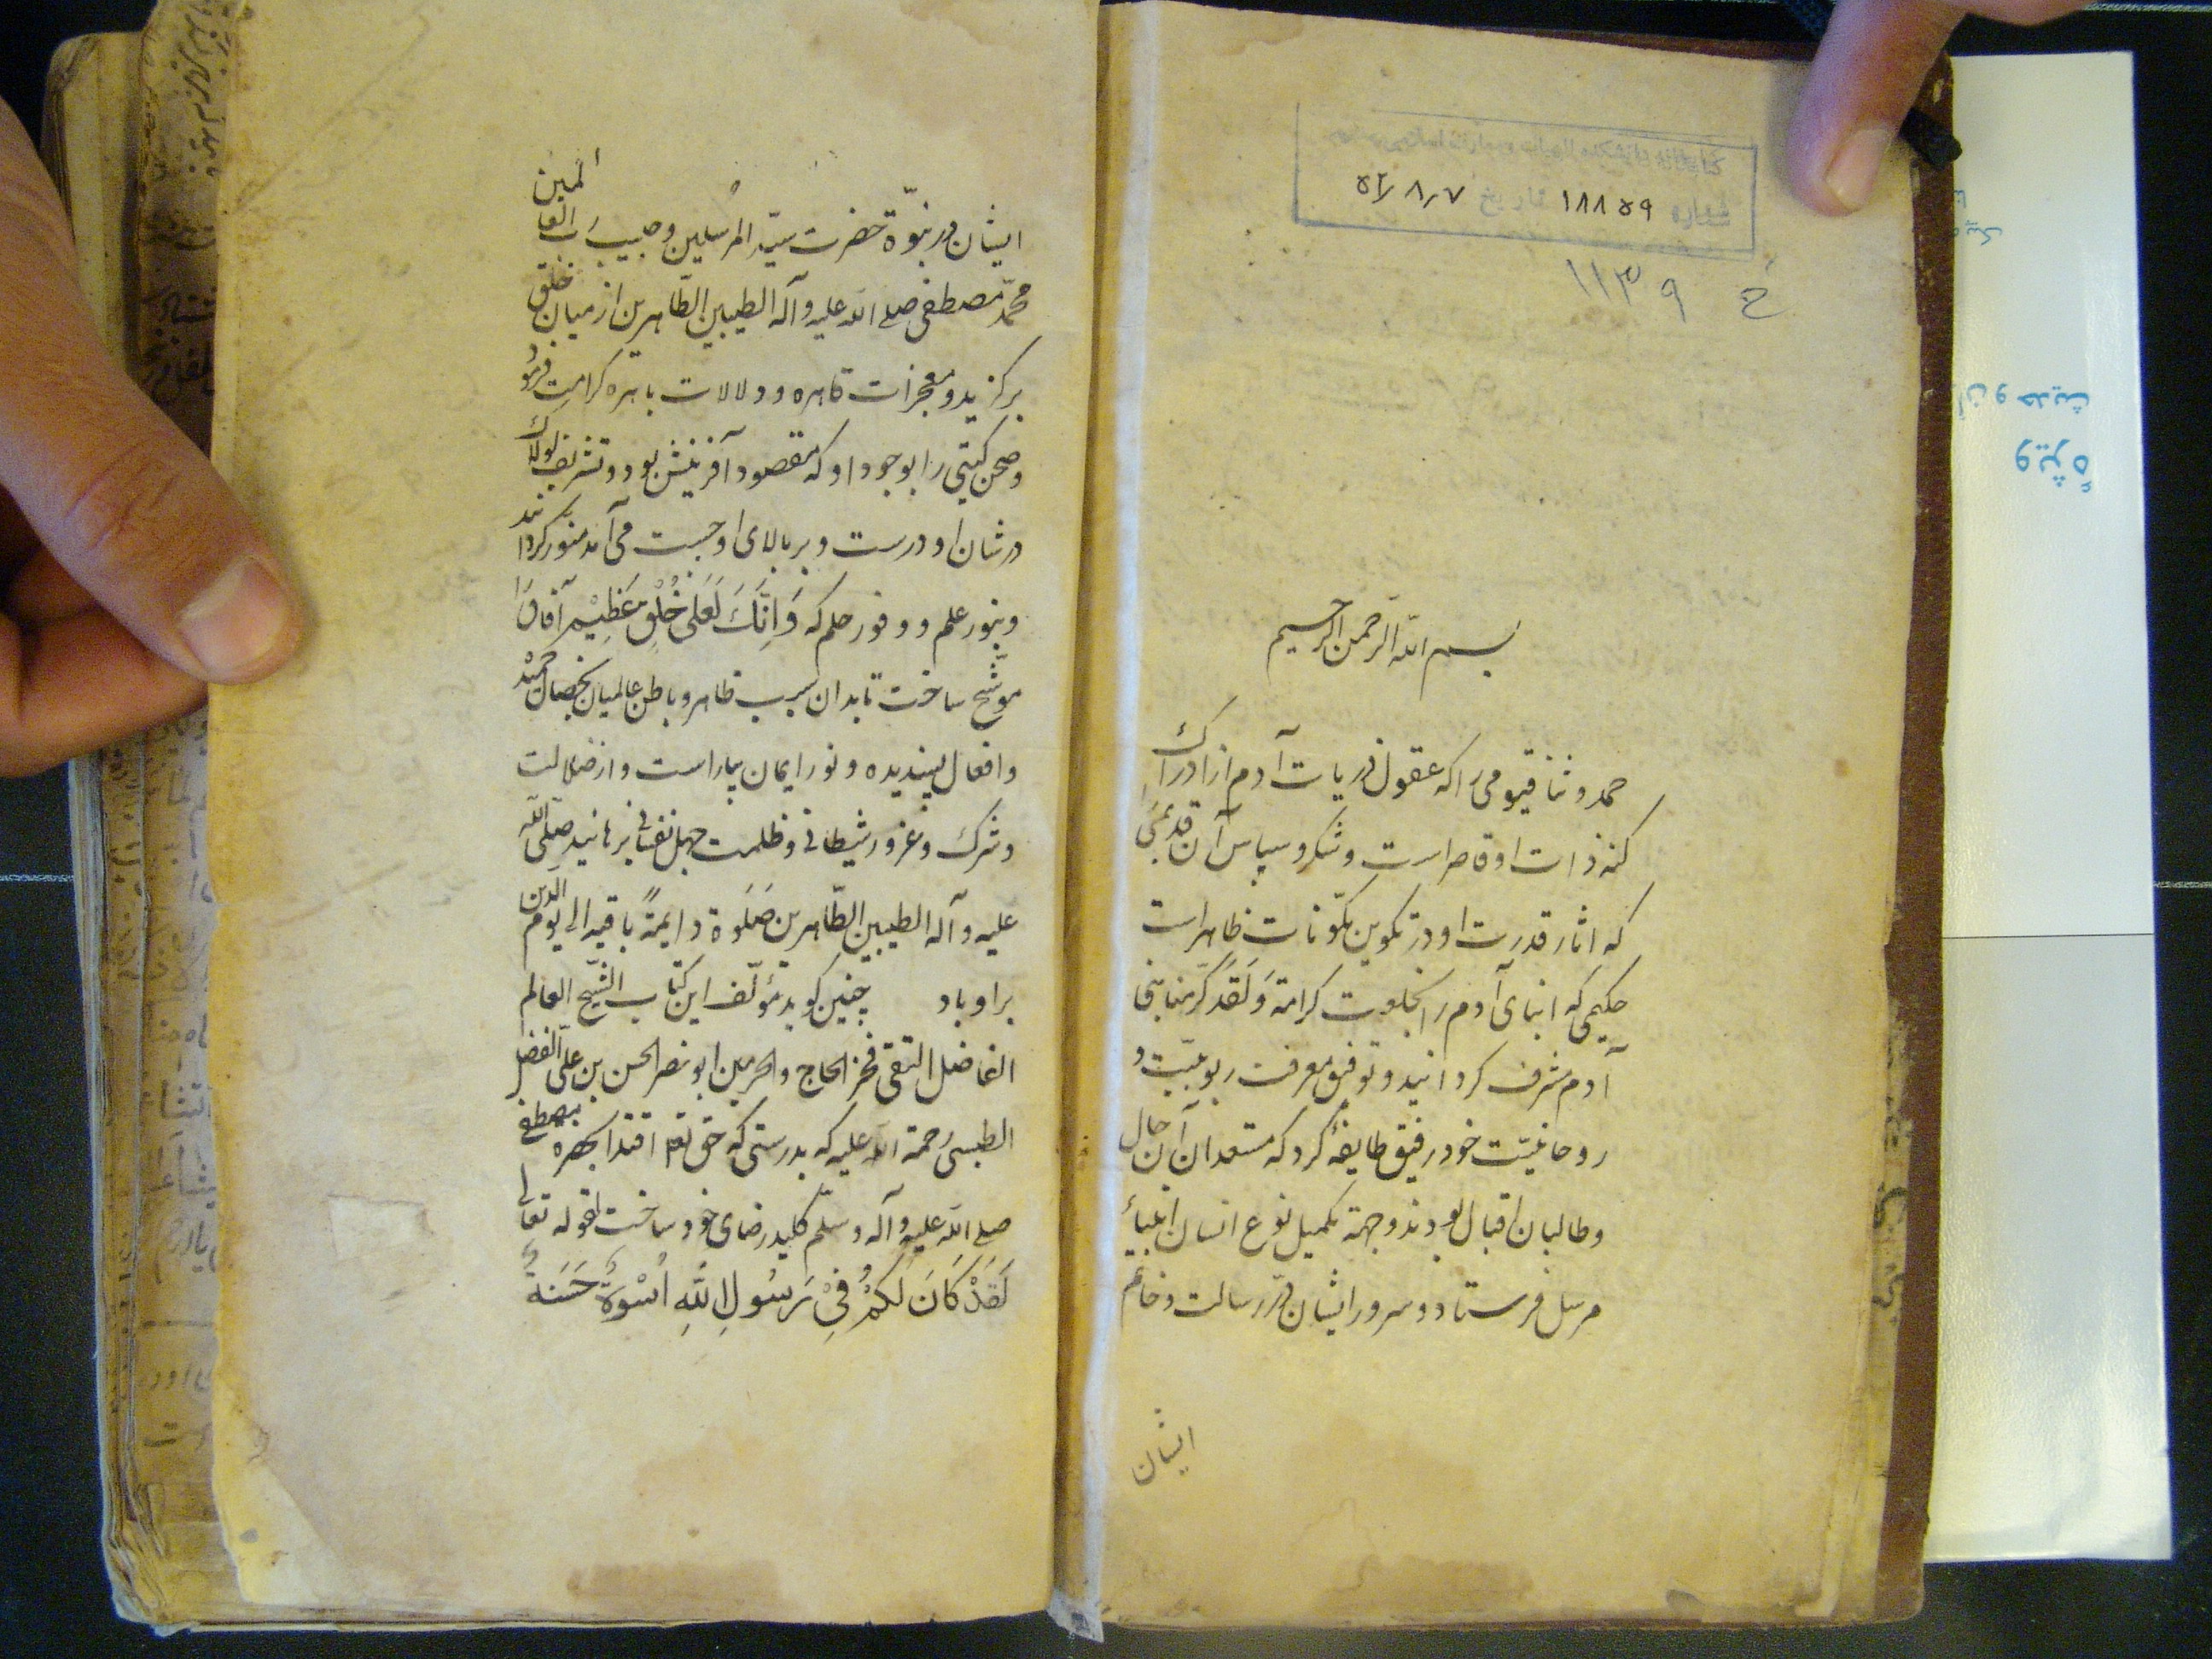 شماره ۱۸۸۵۹ تاریخ ۵۲٫۸٫۷
خ ۱۱۳۹
بسم الله الرحمن الرحیم
حمد و ثنا قیومی را که عقول ذریات آدم از ادراک
کنه ذات او قاصر است و شکر و سپاس آن قدیمی را
که اثار قدرت او در تکوین مکونات ظاهر است
حکیمی که ابنای آدم را بخلعت کرامة وَلَقَدْ کَرَّمنا بنی
آدم مشرف کردانید و توفیق معرفت ربوبیّت و
روحانیّت خود رفیق طایفهٔ کرد که مستعدان آن حال
و طالبان اقبال بودند و جهة تکمیل نوع انسان انبیاء
مرسل فرستاد و سرور ایشان در رسالت و خاتم
ایشان
ایشان در نبوّة حضرت سیّد المرسلین و حبیب رب العالمین
محمّد مصطفی صلے الله علیه و آله الطیبین الطّاهرین از میان خلق
برکزید و معجزات قاهره و دلالات باهره کرامت فرمُود
و صحن کیتی را بوجود او که مقصود آفرینش بود و تشریف لولاک
در شان او درست و بر بالای او چست می آمد منوّر کردانید
و بنور علم و وفور حلم که وَاِنَّكَ لَعَلىٰ خُلُقٍ عَظِيْمٍ آفاق را
موشّح ساخت تا بدان سبب ظاهر و باطن عالمیان بخصال حمیْده
و افعال پسندیده و نور ایمان بیاراست و از ضلالت
و شرک و غرور شیطانی و ظلمت جهل نفسانی برهانید صلّی الله
علیه و آله الطیبین الطّاهرین صَلَوة دایمةً باقیه الی یوم الدین
بر او باد چنین کوید مؤلّف این کتاب الشّیخ العالم
الفاضل التقی فخر الحاج والحرمین ابو نصر الحسن بن علی الفضل
الطبسی رحمة الله علیه که بدرستی که حق تعم اقتدا بهره مصطفے
صلے الله علیه و آله و سلّم کلید رضای خود ساخت لقوله تعالی
لَقَدْ كَانَ لَكُمْ فِيْ رَسُولِ اللّٰهِ اُسْوَةٌ حَسَنَةٌ
ویژهٔ